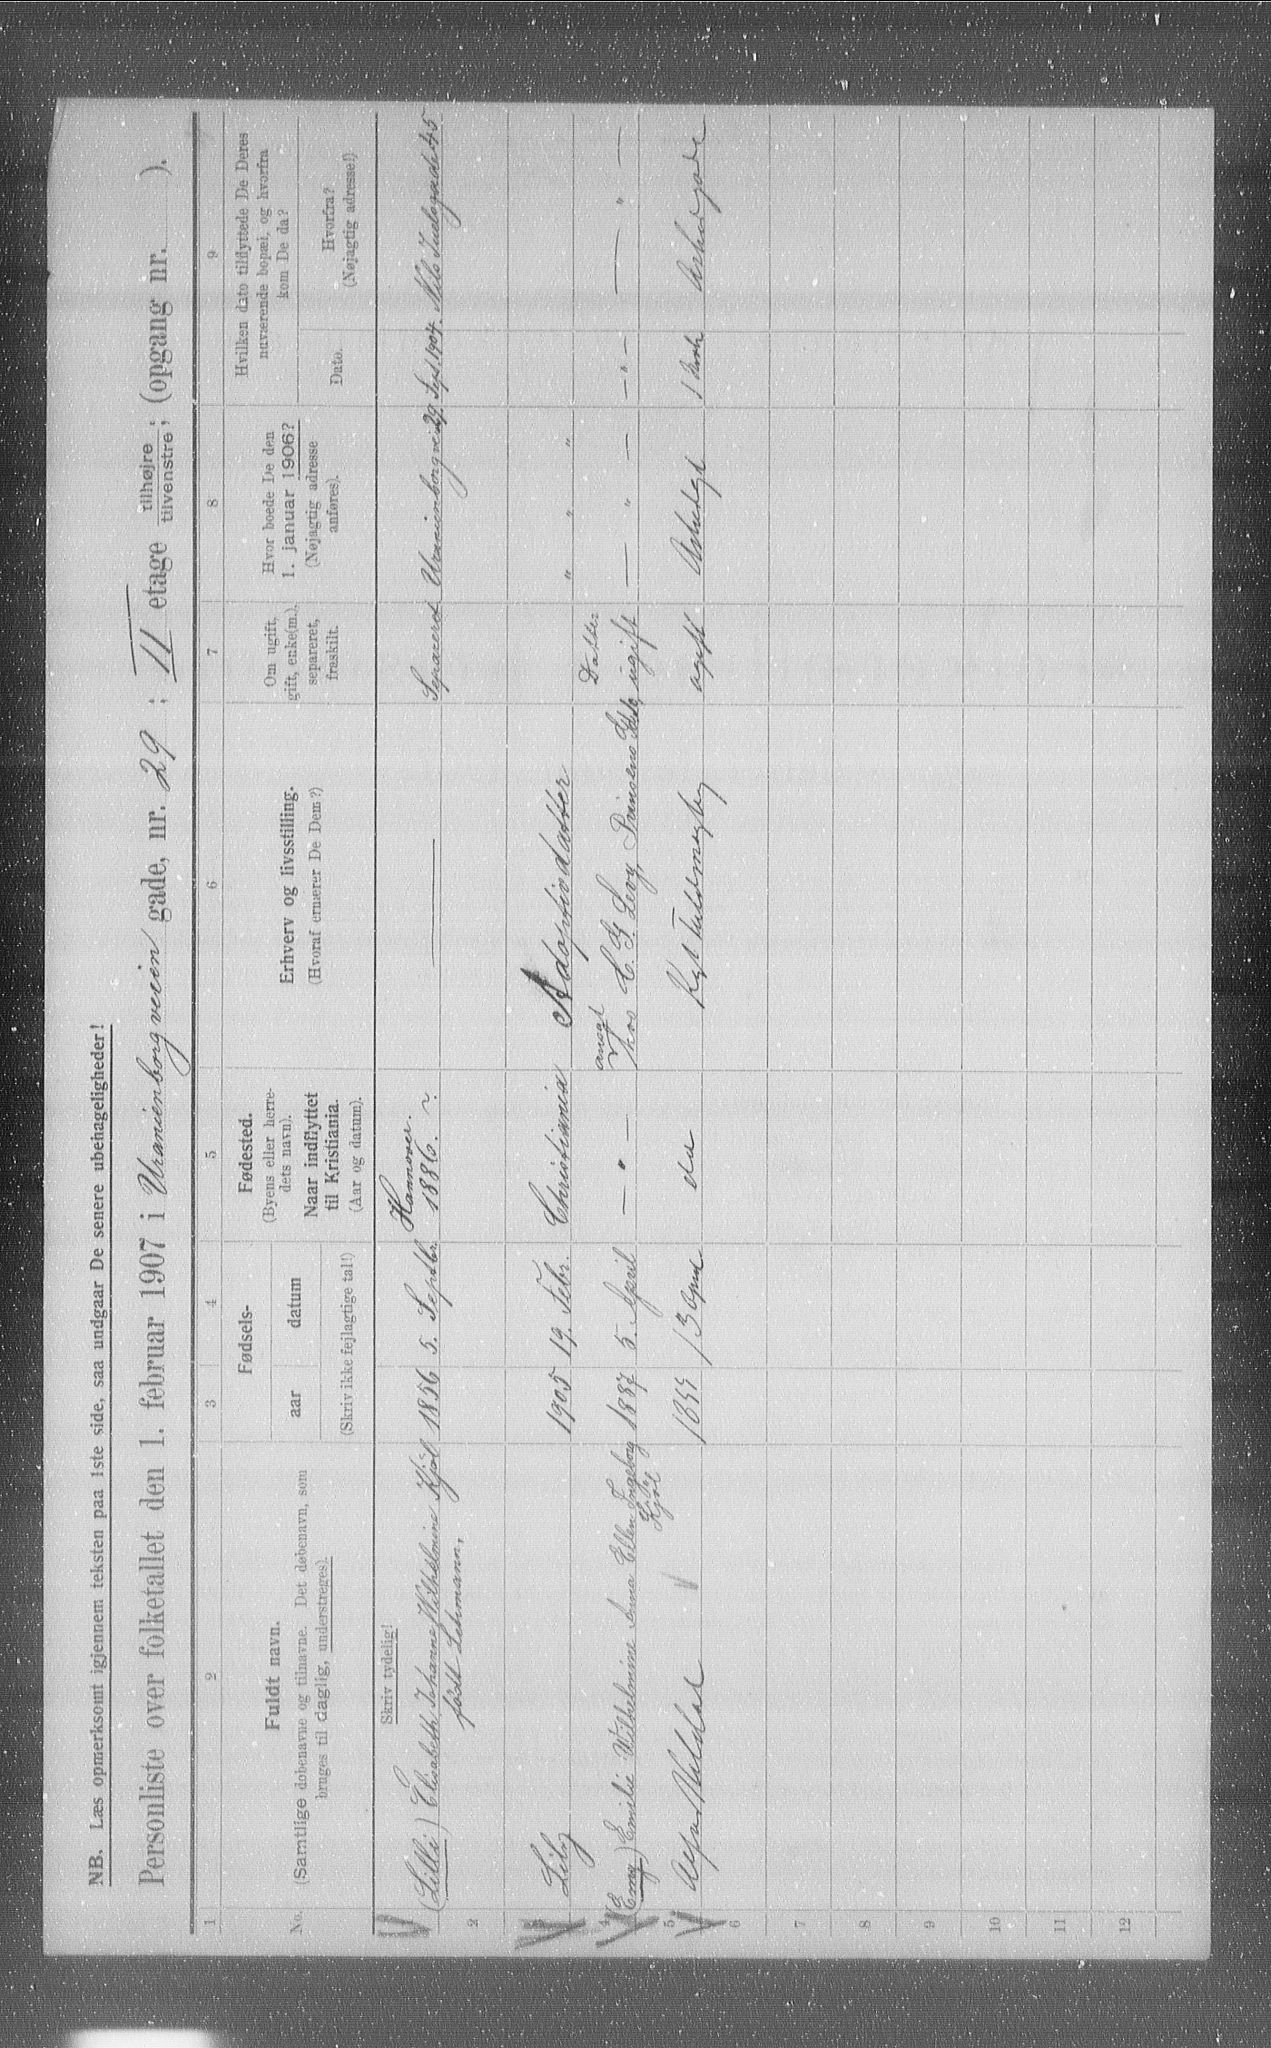 NB. Læs opmerksomt igjennem teksten paa 1ste side, saa undgaar De senere ubehageligheder!
Personliste over folketallet den 1. februar 1907 i Uranienborgveien gade, nr. 29; II etage tilhøjre / tilvenstre; (opgang nr. ).
1 2 3 4 5 6 7 8 9
No.
Fuldt navn.
(Samtlige døbenavne og tilnavne. Det døbenavn, som
bruges til daglig, understreges).
Fødsels-
aar datum
(Skriv ikke fejlagtige tal!)
Fødested.
(Byens eller herre-
dets navn).
Naar indflyttet
til Kristiania.
(Aar og datum).
Erhverv og livsstilling.
(Hvoraf ernærer De Dem?)
Om ugift,
gift, enke(m.),
separeret,
fraskilt.
Hvor boede De den
1. januar 1906?
(Nøjagtig adresse
anføres).
Hvilken dato tilflyttede De Deres
nuværende bopæl, og hvorfra
kom De da?
Dato.
Hvorfra?
(Nøjagtig adresse!)
Skriv tydelig!
(Lilli) Elisabeth Johanne Wilhelmine Kjøl 1856 5. Septbr. Hannover. 1886. — Separeret Uranienborgvei 29. Sept. 1904. Nils Juelsgade 45
2 født Lehmann,
Lily 1905 19. Febr. Christiania Adoptivdatter " " "
4 (Emy) Emilie Wilhelmine Anna Ellen Ingeborg Kjøl 1887 5. April — " — ansat hos C. G. Levy Prinsens Datter ugift — " — — " — — " —
5 1855 13 do ugift
6
7
8
9
10
11
12